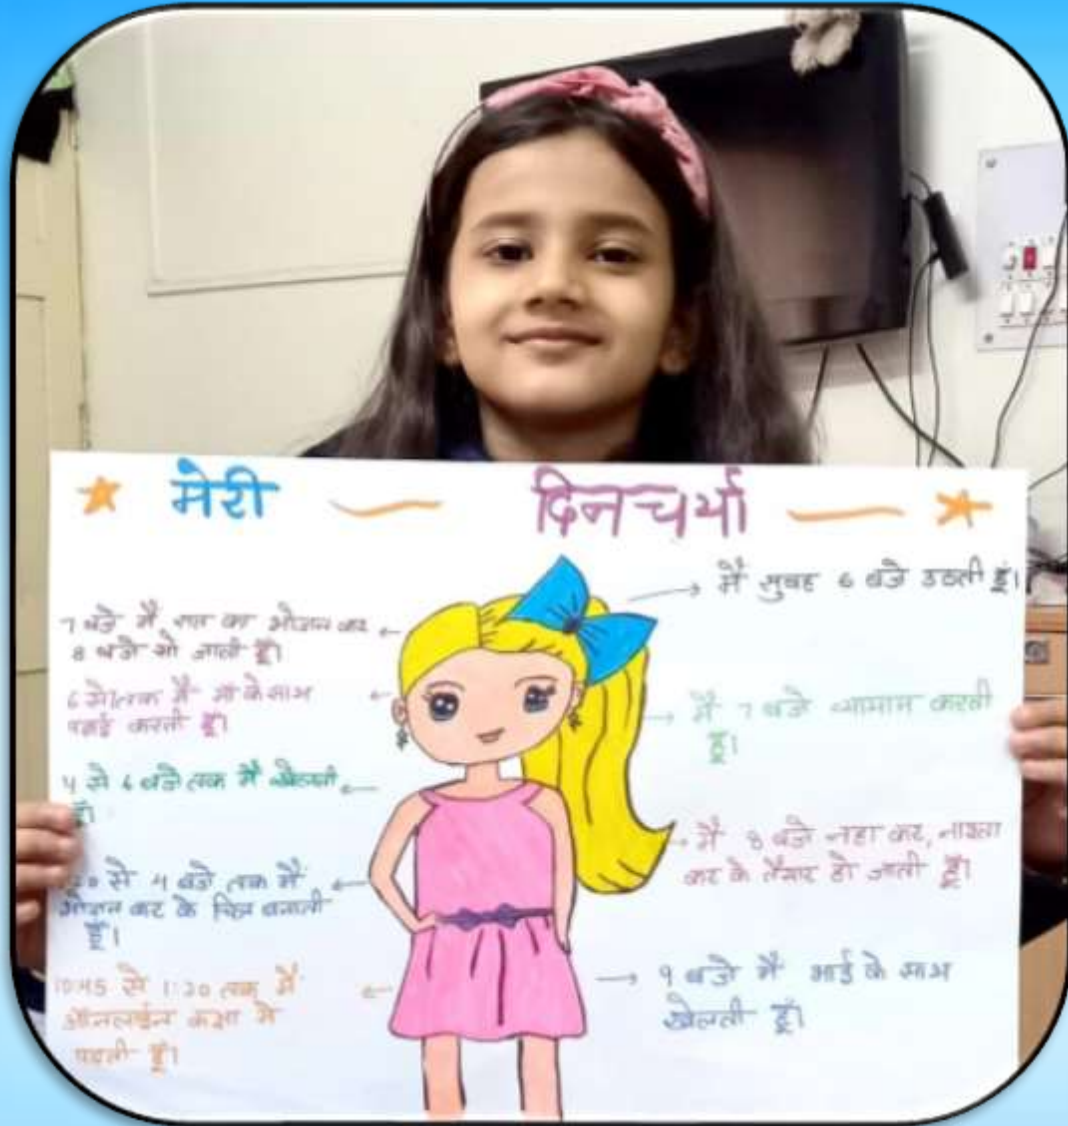 मेरी दिनचर्या
मैं सुबह 6 बजे उठती हूं।
मैं 7 बजे व्यामाम करती
हूं।
मैं 8 बजे नहा कर, नाश्ता
कर के तैयार हो जाती हूँ।
9 बजे मैं भाई के साथ
खेलती हूँ।
10:45 से 1:30 तक मैं
ऑनलाईन कक्षा मे
पढ़ती हूँ।
से 4 बजे तक मैं
भोजन कर के चित्र बनाती
हूँ।
4 से 6 बजे तक मैं खेलती
हूँ।
6 से तक मैं माँ के साथ
पढाई करती हूँ।
7 बजे मैं, रात का भोजन कर
8 बजे सो जाती हूँ।